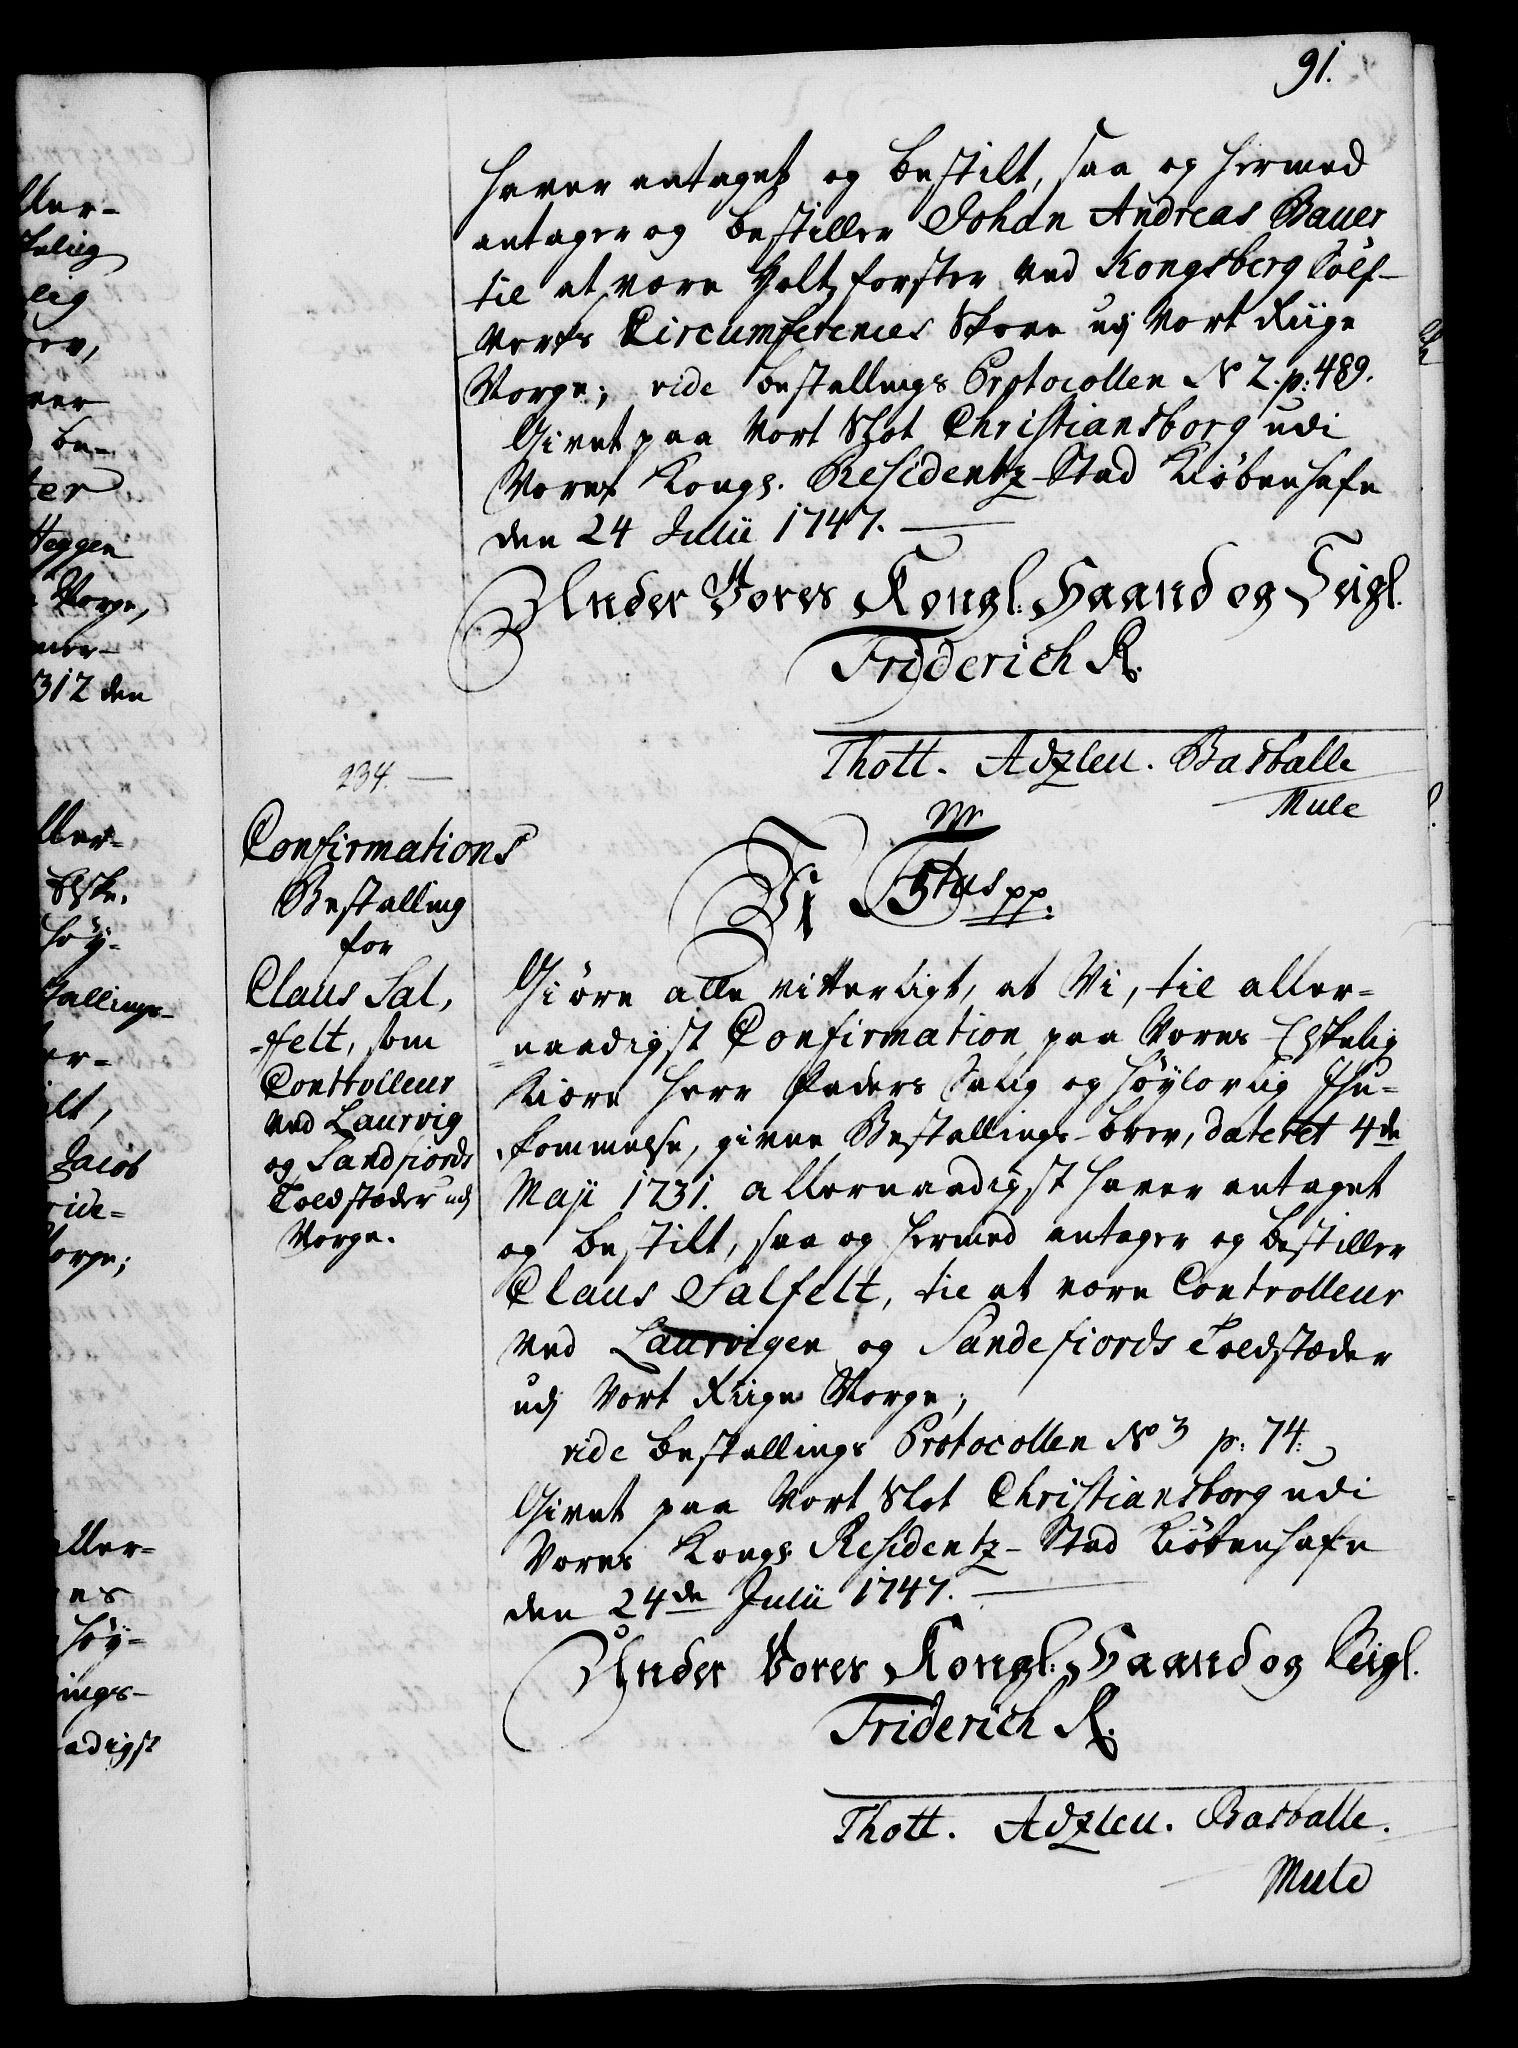 91.
haver antaget og bestilt, saa og hermed
antager og bestiller Johan Andreas Bauer
til at være Holtzforster ved Kongsberg Sølf-
Verks Circumferences Skove udj Vort Riige
Norge; vide bestallings Protocollen No 2. p: 489.
Givet paa Vort Slot Christiansborg udi
Vores Kongl. Residentz-Stad Kiøbenhafn
den 24 Julii 1747.
Under Vores Kongl: Haand og Seigl.
Friderich R.
Thott. Adzleu. Basballe
Mule
234.
Confirmations
Bestalling
for
Claus Sal,
-felt, som
Controlleur
ved Laurvig
og Sandfiords
Toldstæder udj
Norge.
Vi F 5tus pp:
Giøre alle vitterligt, at Vi, til aller-
-naadigst Confirmation paa Vores Elskelig
kiære Herr Faders Salig og høylovlig Ihu-
kommelse, givne Bestallings-brev, dateret 4de
Maji 1731. allernaadigst haver antaget
og bestilt, saa og hermed antager og bestiller
Claus Salfelt, til at være Controlleur
ved Laurvigen og Sandefiords Toldstæder
udj Vort Riige Norge;
vide bestallings Protocollen No 3 p: 74:
Givet paa Vort Slot Christiansborg udi
Vores Kongl. Residentz-Stad Kiøbenhafn
den 24de Julii 1747.
Under Vores Kongl: Haand og Seigl.
Friderich R.
Thott. Adzleu. Basballe.
Mule